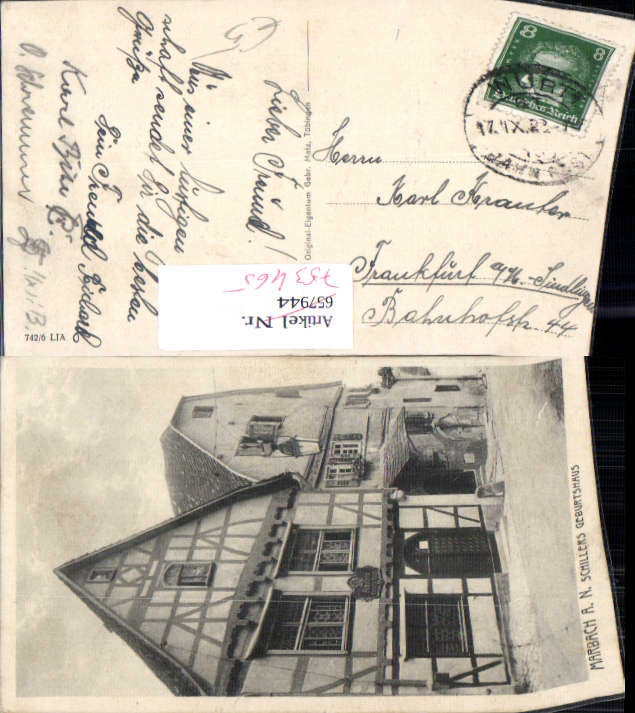 8 8
Deutsches Reich
17.IX.2
Lieber Freund!
Aus einer lustigen
schaft sendet Dir die besten
Grüße
Dein Freund
Karl
Original-Eigentum Gebr. Metz, Tübingen
Herrn
Karl Krauter
Frankfurt a/M.-Sindlingen
Bahnhofstr. 44
753465
657944
Artikel Nr.
742/6 LIA
MARBACH A. N. SCHILLERS GEBURTSHAUS